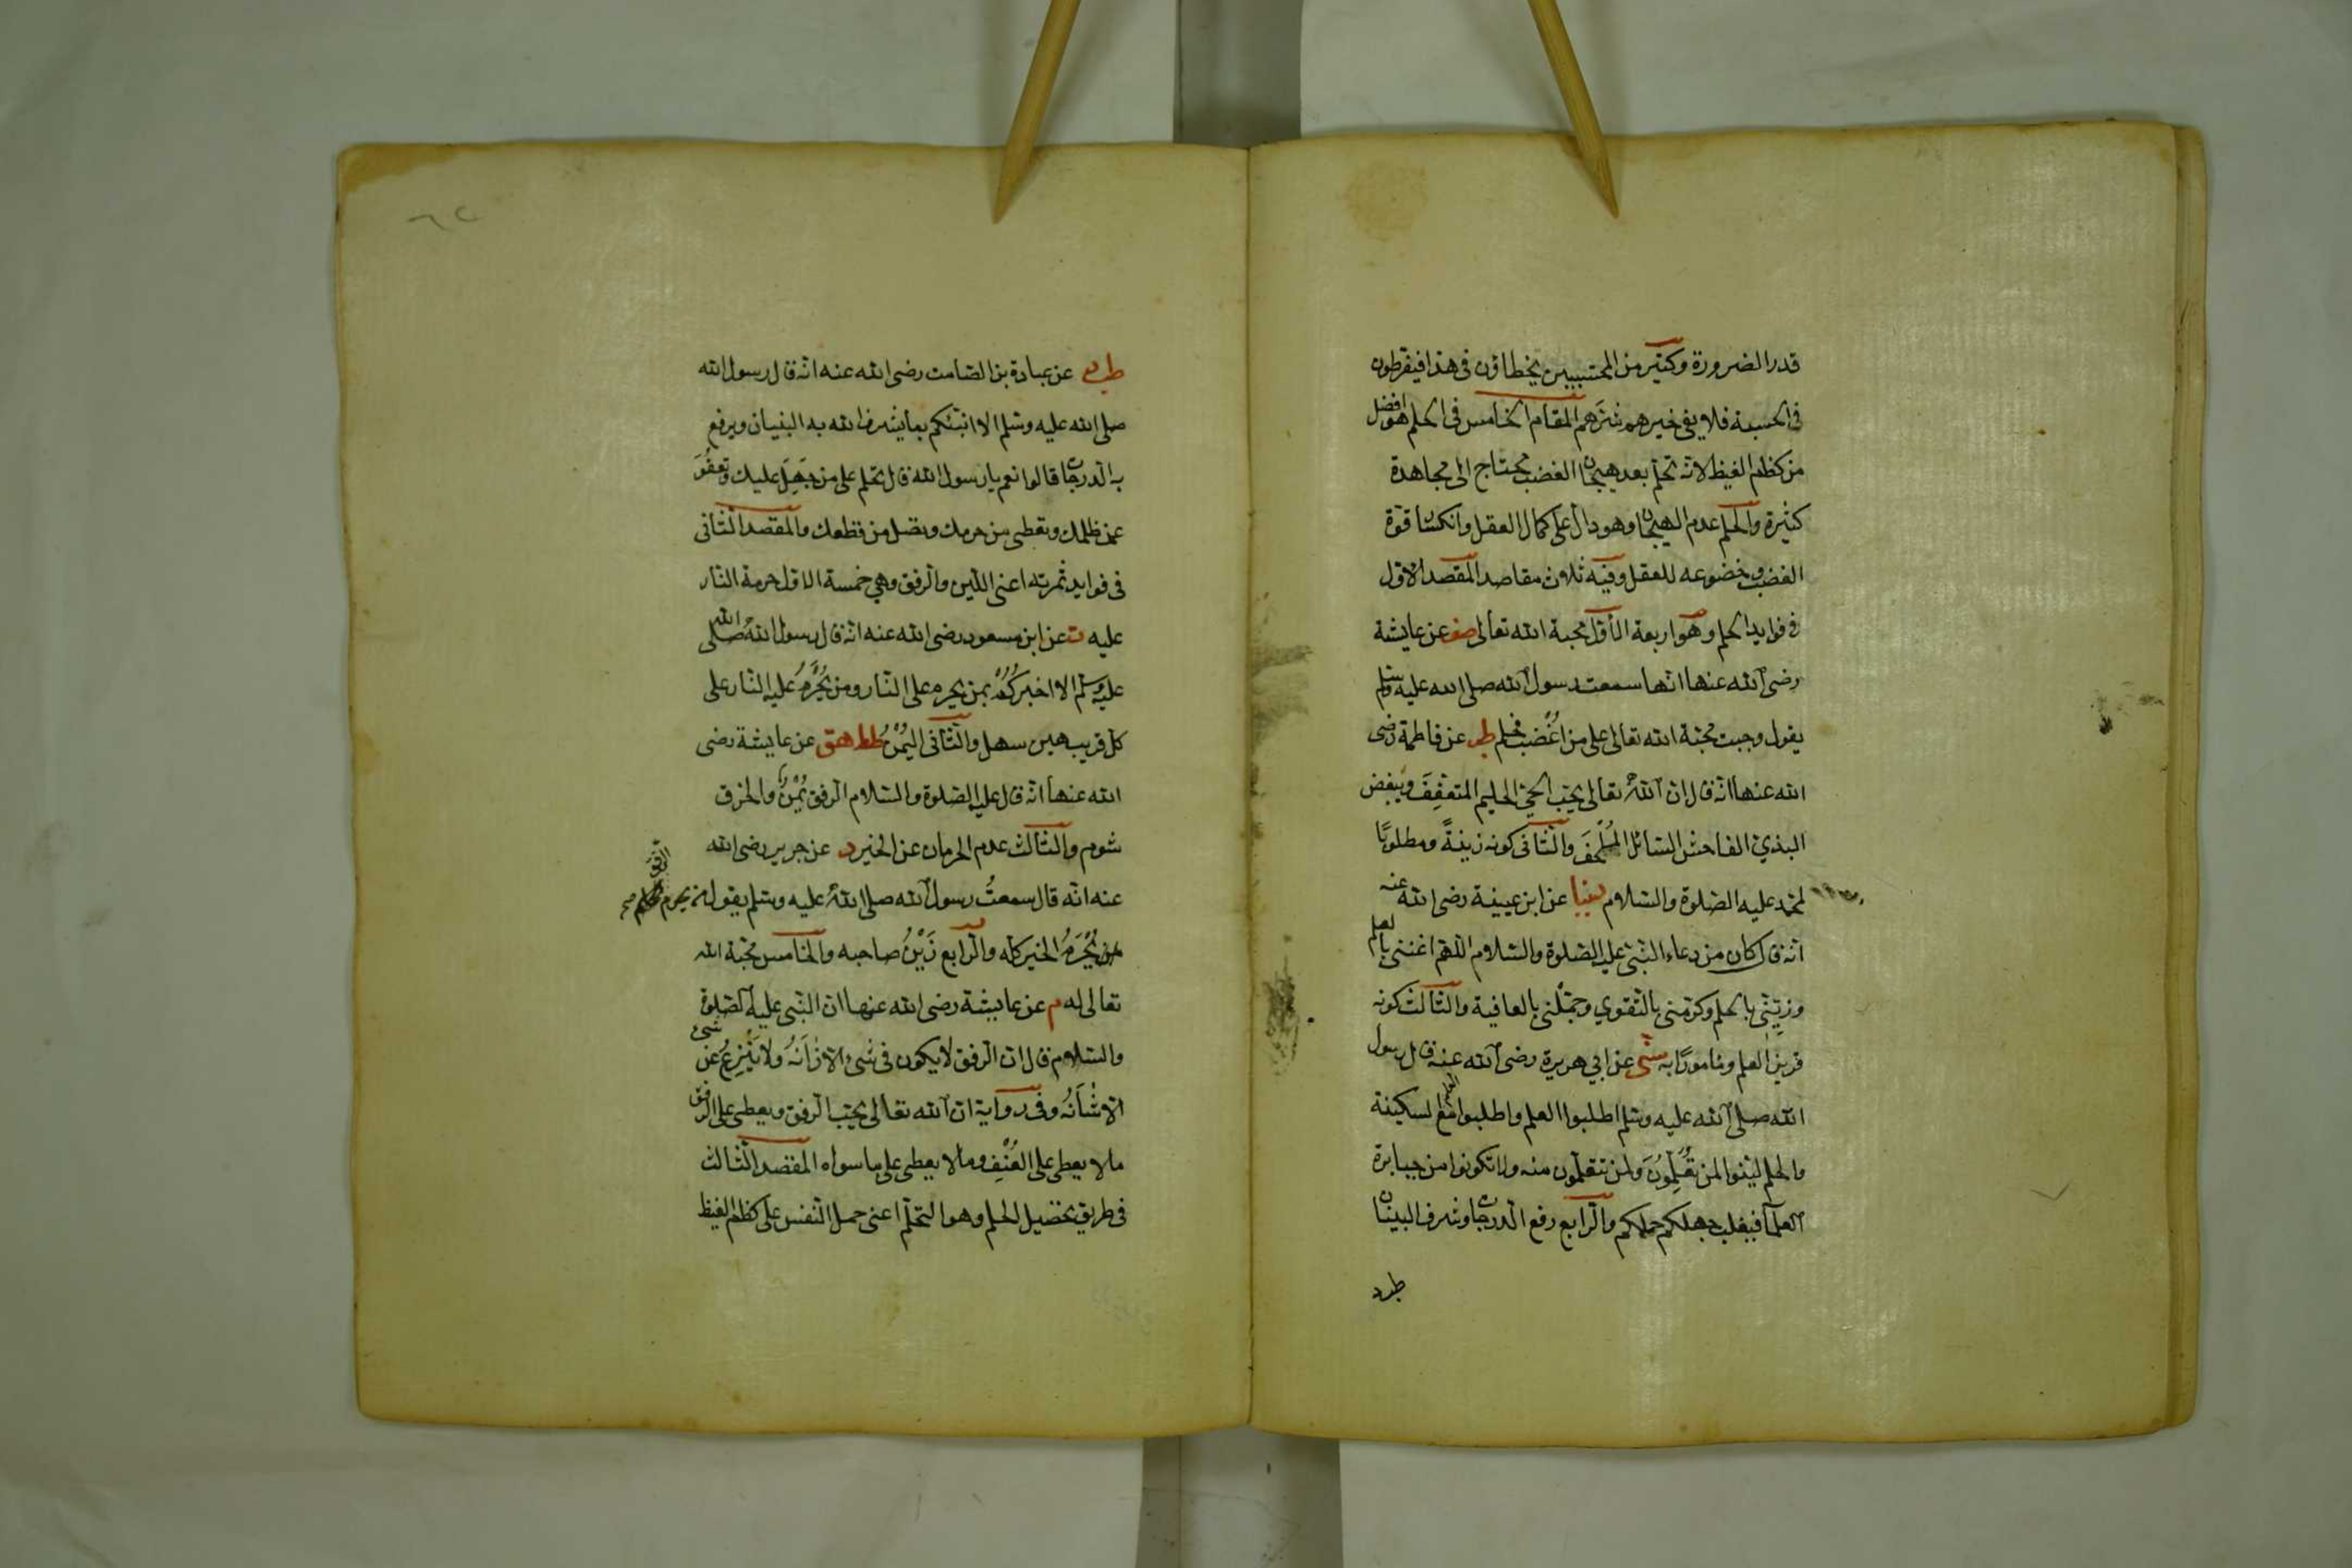 قدر الضرورة وكثير من المحتسبين يخطاؤن فى هذا فيفرطون
فى الحسبة فلا يفى خيرهم شرهم المقام الخامس فى الحلم هو افضل
من كظم الغيظ لانه تحلم بعد هيجان الغضب محتاج الى مجاهدة
كثيرة والحلم عدم الهيجان وهو دال على كمال العقل وانكسار قوة
الغضب وخضوعه للعقل وفيه ثلاث مقاصد المقصد الاول
فى فوايد الحلم وهو اربعة الأول محبة الله تعالى صف عن عايشة
رضى الله عنها انها سمعت رسول الله صلى الله عليه وسلم
يقول وجبت محبة الله تعالى على من اُغْضب فحلم طب عن فاطمة رضى
الله عنها انه قال ان اللهُ تعالى يحب الحيى الحليم المتعفِفَ ويبغض
البذىَّ الفاحش السائل المُلْحِفَ والثانى كونه زينةً ومطلوبًا
لمحمد عليه الصلوة والسلام دنيا عن ابن عيينة رضى الله عنه
انه قال كان من دعاء النبى عليه الصلوة والسلام اللهم اغننى بالعلم
وزَيِّنِّى بالحلم وكرمنى بالتقوي وجمّلنى بالعافية والثالث كونه
قرين العلم ومامورًا به سنى عن ابي هريرة رضى الله عنه قال رسول
الله صلى الله عليه وسلم اطلبوا العلم واطلبوا مع العلم السكينة
والحلم لينوا لمن تُعَلِّمُونَ ولمن تتعلمون منه ولا تكونوا من جبابرة
العلمآ فيغلب جهلكم حلمكم والرابع رفع الدرجات وشرف البنيان
طب
طب عن عبادة بن الصامت رضى الله عنه انه قال رسول الله
صلى الله عليه وسلم الا انبئكم بما يشرف الله به البنيان ويرفع
به الدرجات قالوا نعم يا رسول الله قال تحلم على من جَهِلَ عليك وتعفُوَ
عمن ظلمك وتعطى من حرمك وتصل من قطعك والمقصد الثانى
فى فوايد ثمرته اعنى اللين والرفق وهي خمسة الاول حرمة النار
عليه ت عن ابن مسعود رضى الله عنه انه قال رسول اللهُ صلى الله
عليه وسلم الا اخبركُمْ بمن يحرم على النار ومن يُحْرَمُ عليه النار على
كل قريب هين سهل والثانى اليُمْنُ طط هق عن عايشة رضى
الله عنها انه قال عليه الصلوة والسلام الرفق يُمْنٌ والخرق
شوم والثالث عدم الحرمان عن الخير د عن جرير رضى الله
عنه انه قال سمعتُ رسول الله صلى اللهُ عليه وسلم يقول من يحرم الرفق صح
يُحْرَمُ الخير كله والرابع زَيْنُ صاحبه والخامس محبة الله
تعالى له م عن عايشة رضى الله عنها ان النبى عليه الصلوة
والسلام قال ان الرفق لا يكون فى شىء الا زَانَهُ ولا يَنْزِعُ عن شىء
الا شَانَهُ وفى رواية ان الله تعالى يحب الرفق ويعطى على الرفق
ما لا يعطى على العُنْفِ وما لا يعطى على ما سواه المقصد الثالث
فى طريق تحصيل الحلم وهو التحلّم اعنى حمل النفس على كظم الغيظ